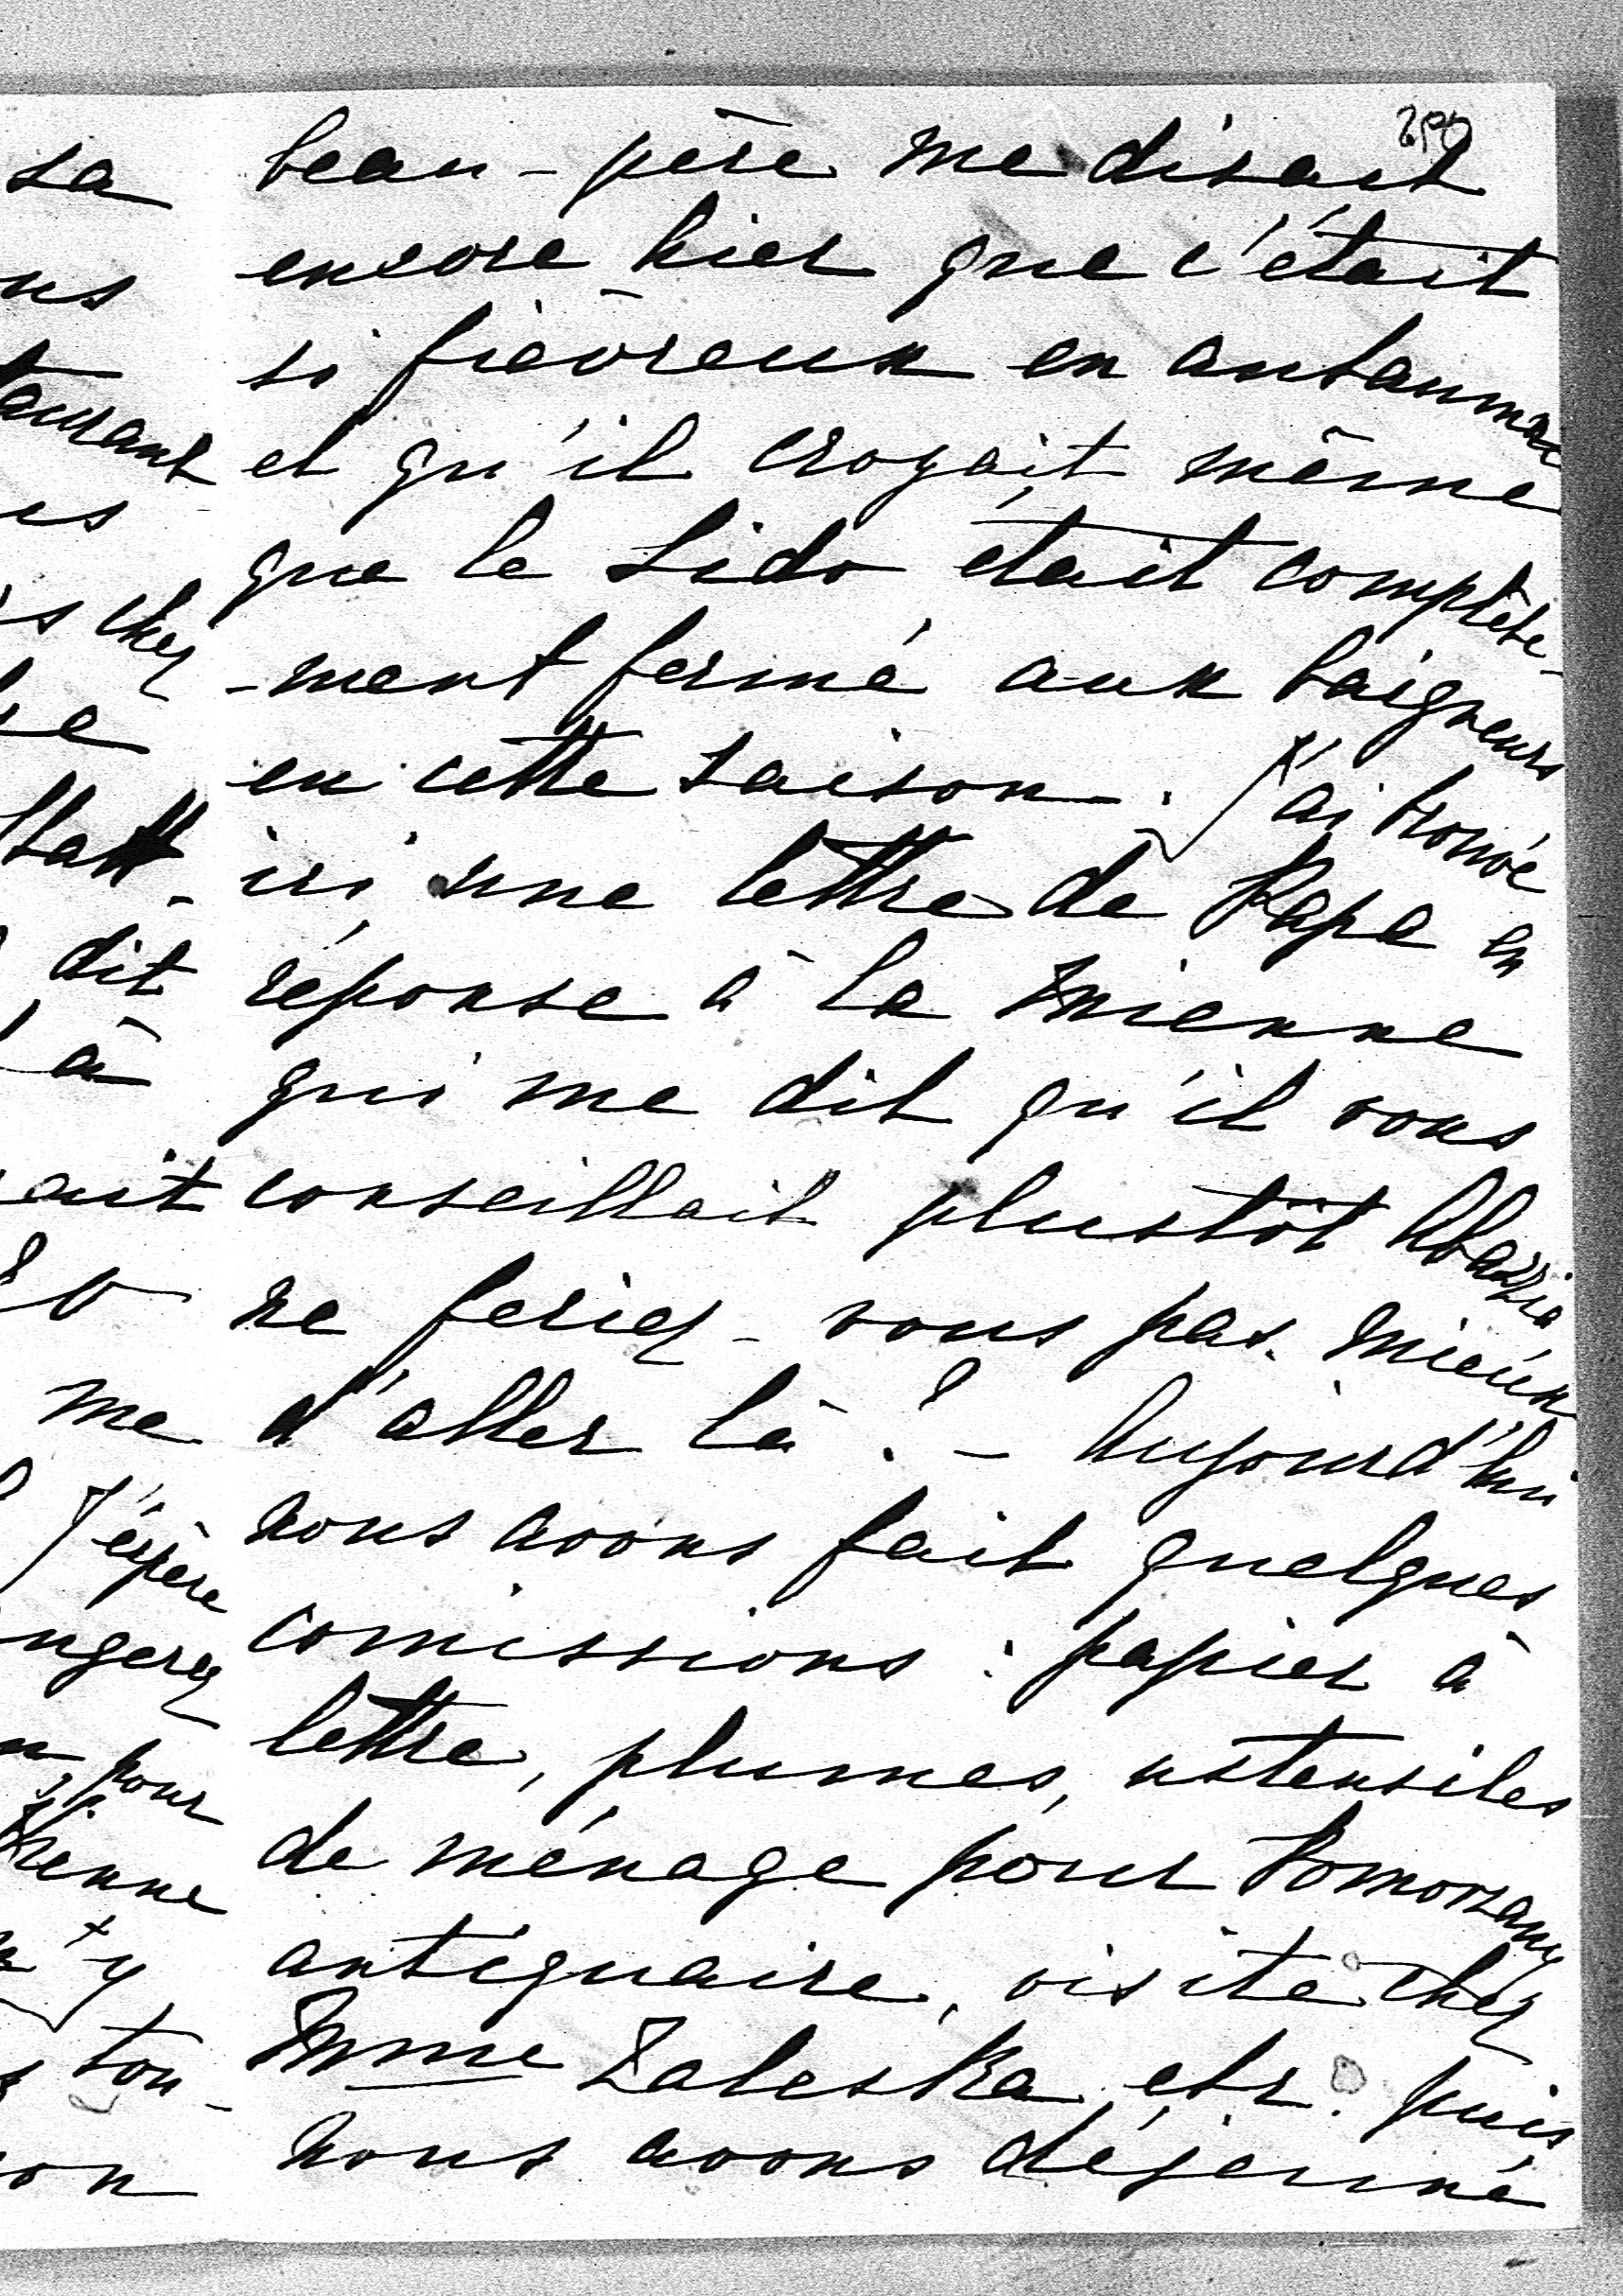 beau-père me disait
encore hier que c'était
si fiévreux en autaumne
et qu'il croyait même
que le Lido était complète-
-ment fermé aux baigneurs
en cette saison. J'ai trouvé
ici une lettre de Papa en
réponse à la mienne
qui me dit qu'il vous
conseillait plustôt Abazzia
ne feriez-vous pas mieux
d'aller là ? - Aujourd'hui
nous avons fait quelques
comissions : papier à
lettre, plumes, ustensiles
de ménage pour Pomorzany
antiquaire, visite chez
Mme Zaleska etc. puis
nous avons déjeuné
sa
ns
taurant
us
s chez
dit
à
ait
me
J'éspère
ngerez
pour
y
tou-
on